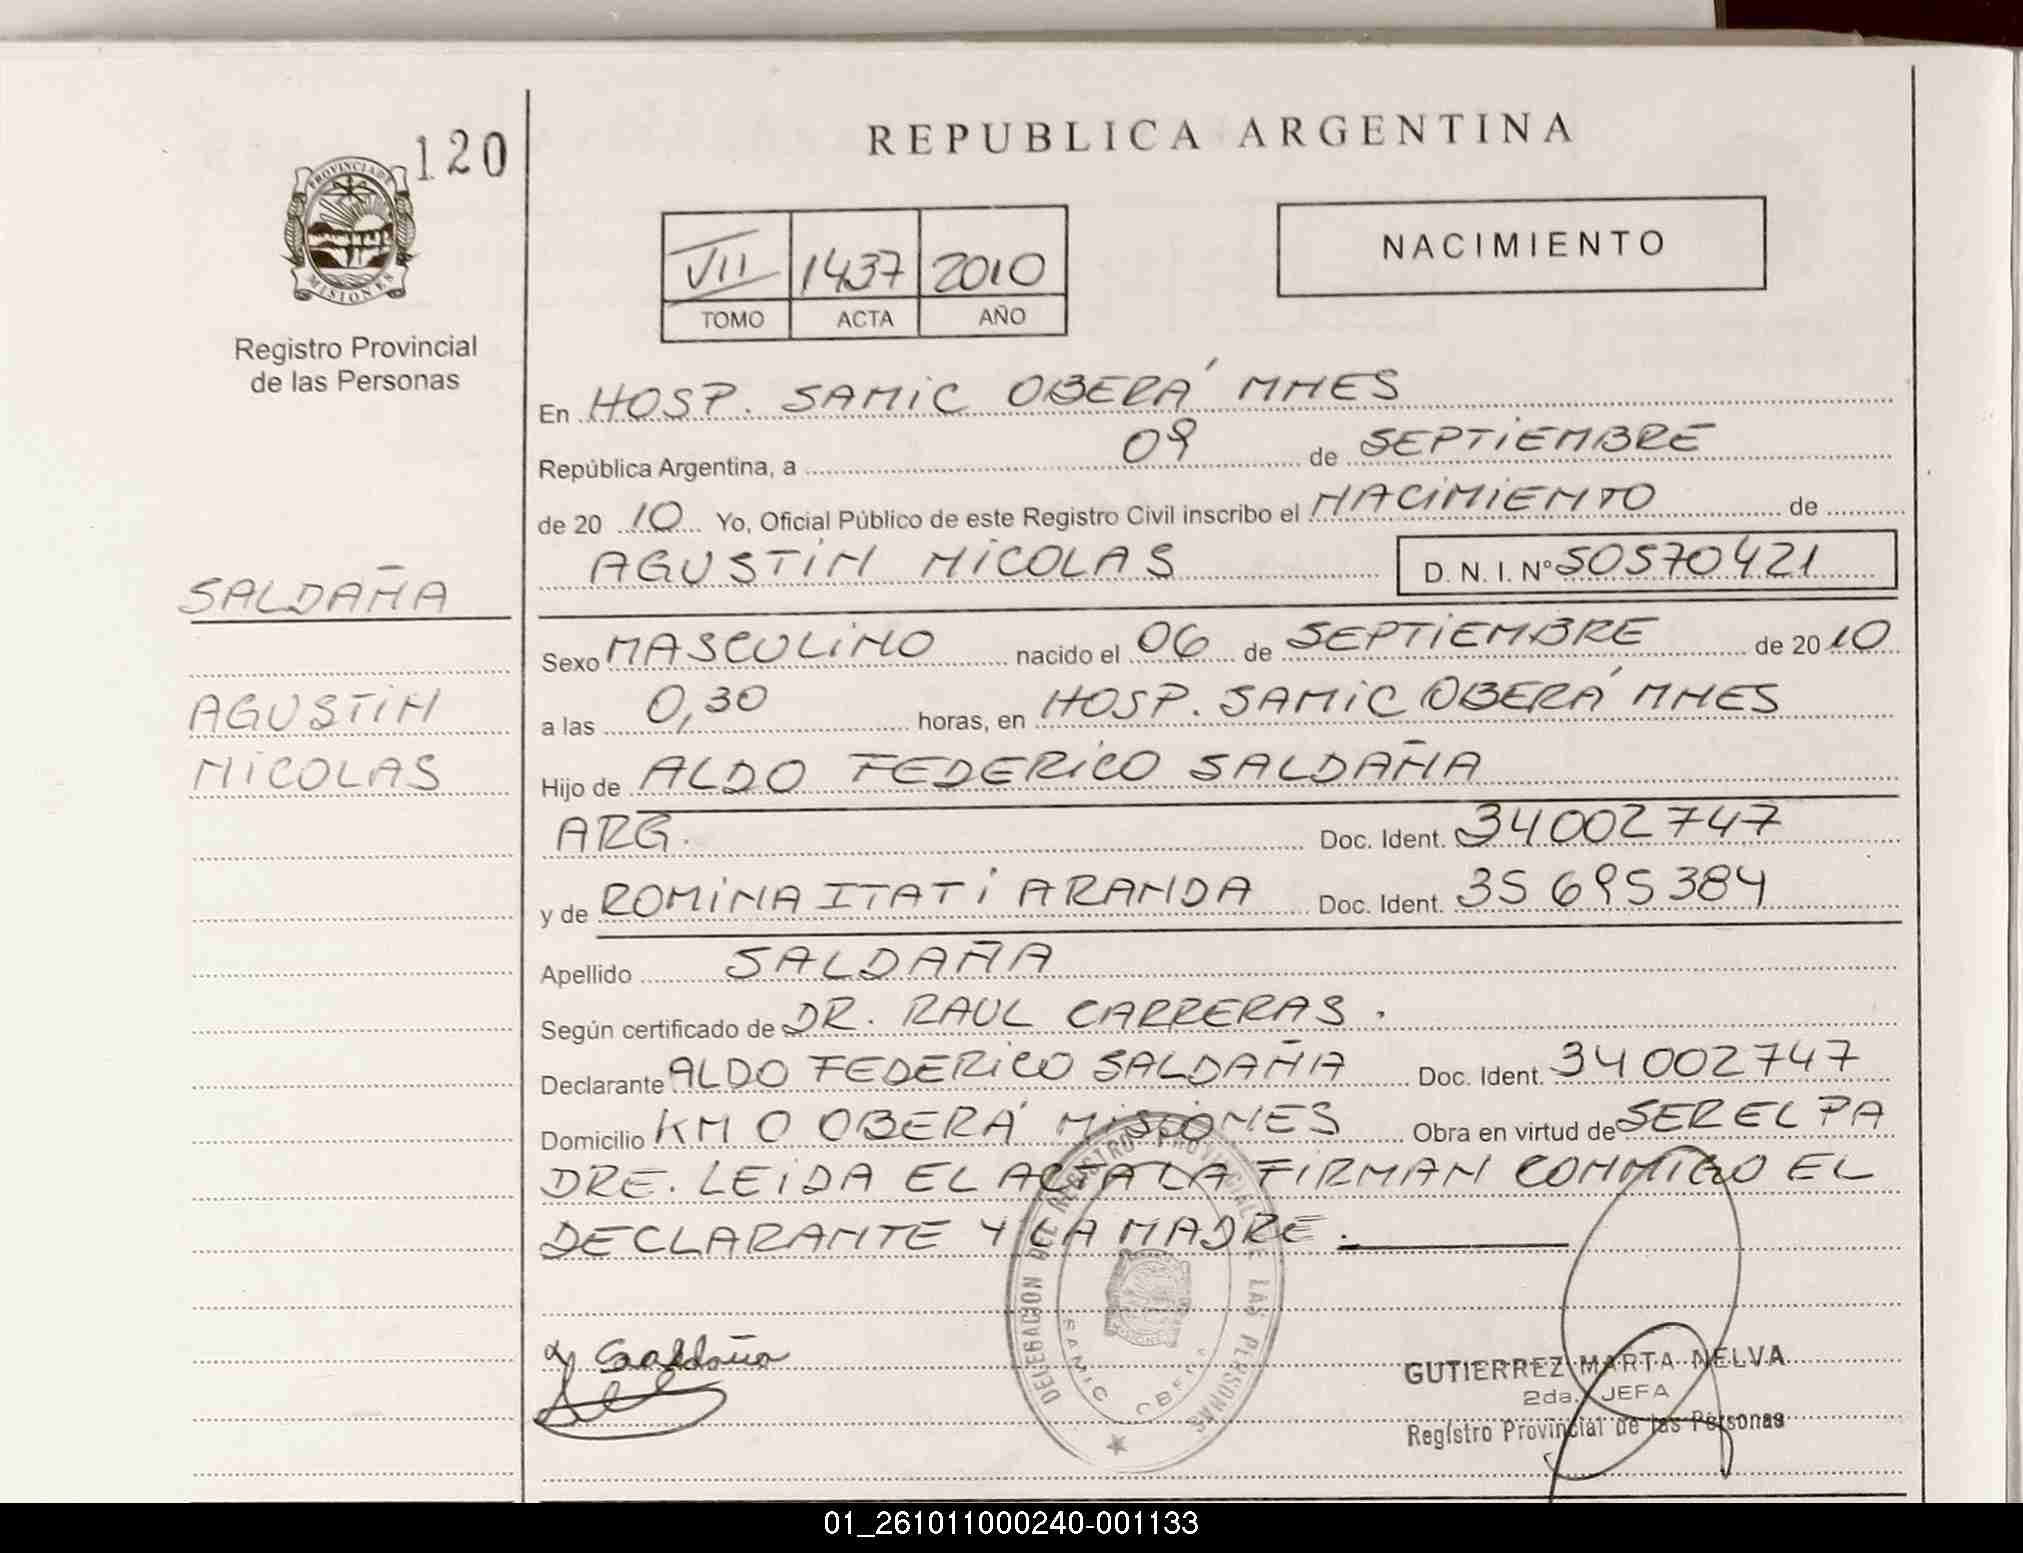 120
PROVINCIA DE
MISIONES
Registro Provincial
de las Personas
REPUBLICA ARGENTINA
VII 1437 2010
TOMO ACTA AÑO
NACIMIENTO
En HOSP. SAMIC OBERÁ MNES
República Argentina, a 09 de SEPTIEMBRE
de 20 10 Yo, Oficial Público de este Registro Civil inscribo el NACIMIENTO de
AGUSTIN NICOLAS D. N. I. Nº 50570421
SALDAÑA
AGUSTIN
NICOLAS
Sexo MASCULINO nacido el 06 de SEPTIEMBRE de 20 10
a las 0,30 horas, en HOSP. SAMIC OBERÁ MNES
Hijo de ALDO FEDERICO SALDAÑA
ARG. Doc. Ident. 34002747
y de ROMINA ITATI ARANDA Doc. Ident. 35695384
Apellido SALDAÑA
Según certificado de DR. RAUL CARRERAS.
Declarante ALDO FEDERICO SALDAÑA Doc. Ident. 34002747
Domicilio KM 0 OBERÁ MISIONES Obra en virtud de SER EL PA
DRE. LEIDA EL ACTA LA FIRMAN CONMIGO EL
DECLARANTE Y LA MADRE.
DELEGACION DEL REGISTRO PROVINCIAL DE LAS PERSONAS
SAMIC OBERA
Saldaña
GUTIERREZ MARTA NELVA
2da. JEFA
Registro Provincial de las Personas
01_261011000240-001133